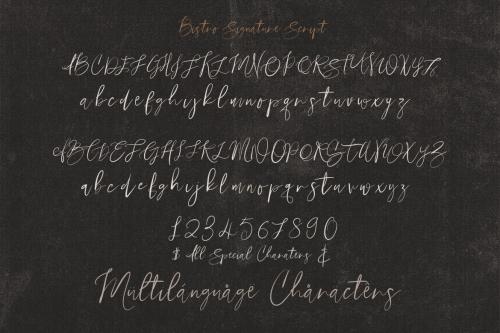 Bistro Signature Script
ABCDEFGHIJKLMNOPQRSTUVWXYZ
abcdefghijklmnopqrstuvwxyz
ABCDEFGHIJKLMNOPQRSTUVWXYZ
abcdefghijklmnopqrstuvwxyz
1234567890
$ All Special Characters &
Múltìlánguåge Chåráctèrs